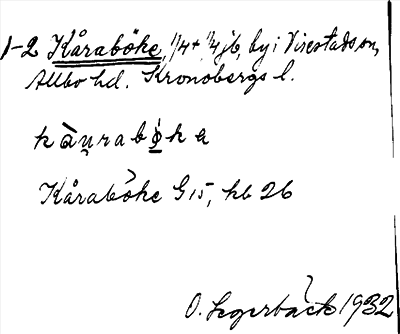 1-2 Kåraböke, 1/4 + 1/4 jb, by i Virestads sn,
Allbo hd. Kronobergs l.
kàu̯rabø̀ka
Kåraböke G 15, kb 26
O. Segerbäck 1932